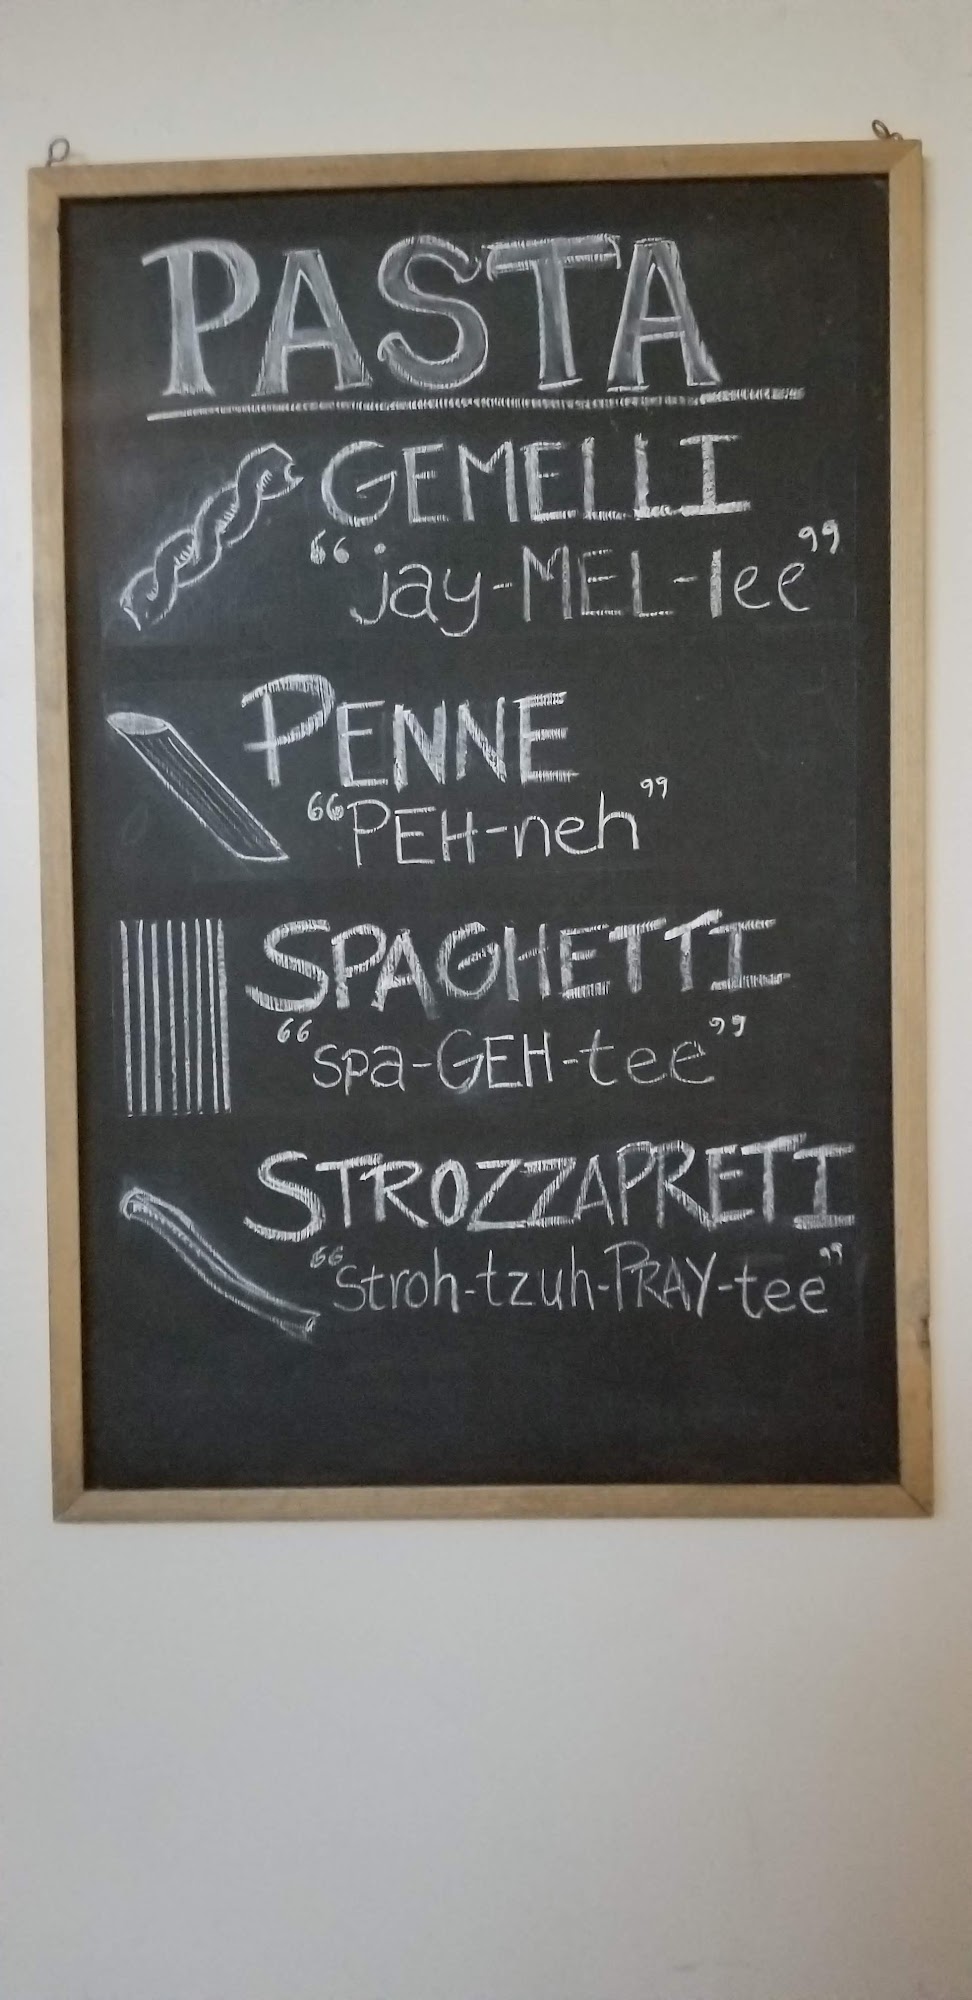 PASTA
GEMELLI
“jay-MEL-lee”
PENNE
“PEH-neh”
SPAGHETTI
“spa-GEH-tee”
STROZZAPRETI
“Stroh-tzuh-PRAY-tee”